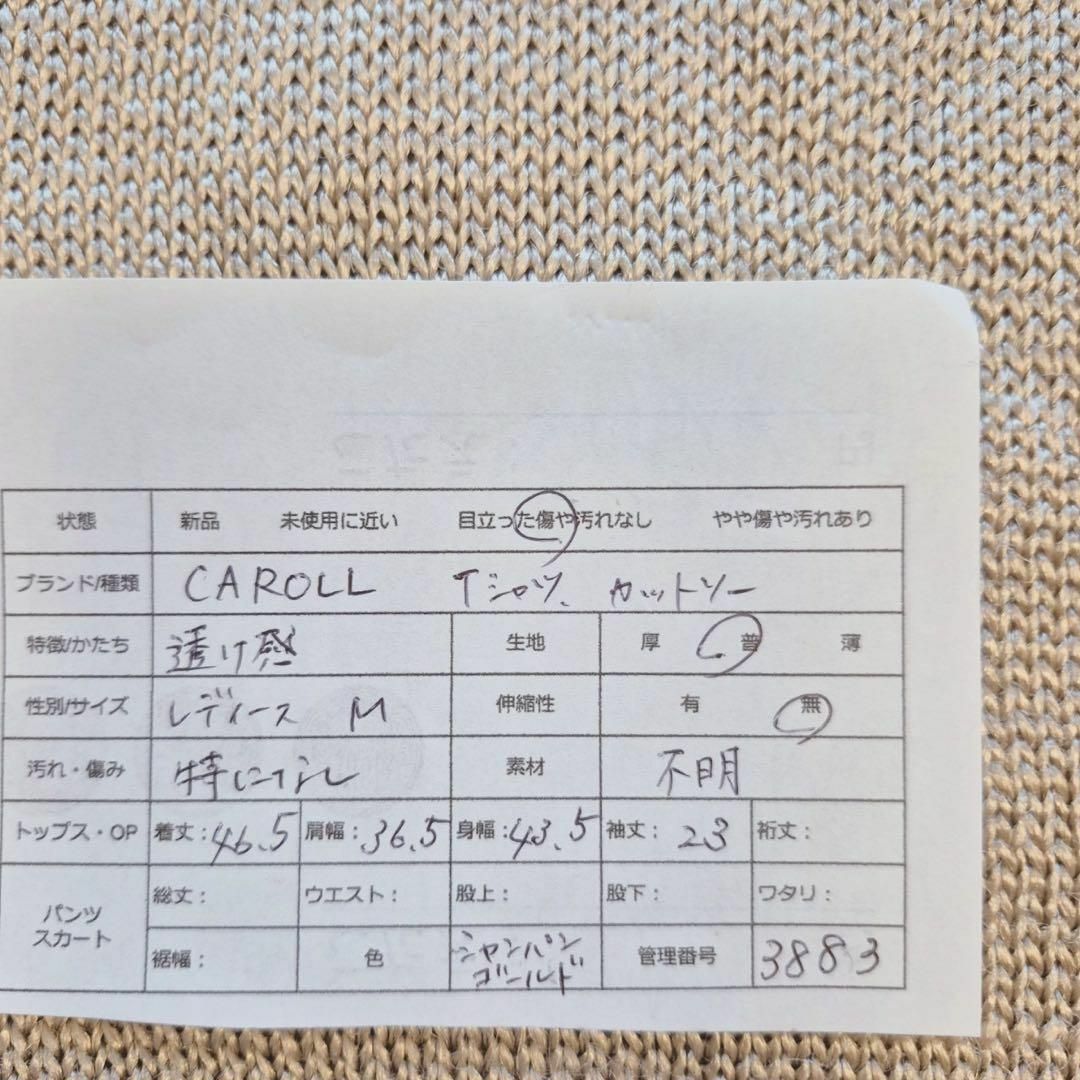 状態 新品 未使用に近い 目立った傷や汚れなし やや傷や汚れあり
ブランド/種類 CAROLL Tシャツ、カットソー
特徴/かたち 透け感 生地 厚 普 薄
性別/サイズ レディース M 伸縮性 有 無
汚れ・傷み 特になし 素材 不明
トップス・OP 着丈:46.5 肩幅:36.5 身幅:43.5 袖丈:23 裄丈:
パンツ
スカート
総丈: ウエスト: 股上: 股下: ワタリ:
裾幅: 色 シャンパン
ゴールド
管理番号 3883